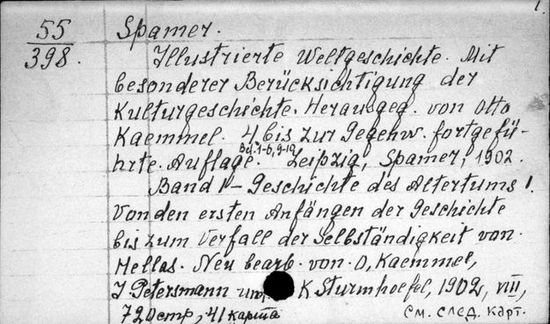 1.
55
398.
Spamer.
Illustrierte Weltgeschichte. Mit
besonderer Berücksichtigung der
Kulturgeschichte. Herausgeg. von Otto
Kaemmel. 4 bis zur Gegenw. fortgefü-
hrte. Auflage. Bd. 1-6, 9-10 Leipzig, Spamer, 1902.
Band I – Geschichte des Altertums 1.
Von den ersten Anfängen der Geschichte
bis zum Verfall der Selbständigkeit von
Hellas. Neu bearb. von O, Kaemmel,
J Petersmann K Sturmhoefel, 1902, VIII,
720 стр, 41 карта
См. след. карт.